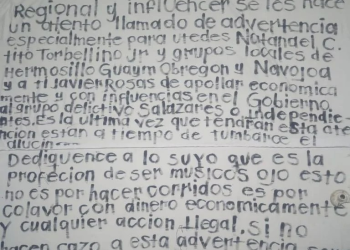 Regional y inflUencer se les hace
un atento llamado de advertencia
especialmente para utedes Natanael C.
tito Torbellino Jr y grupos locales de
Hermosillo Guaym Obregon y Navojoa
y a ti Javier Rosas de apollar economica
mente y con influencias en el Gobierno
al grupo delictivo Salazares o independie-
ntes. Es la ultima vez que tendran esta ate
ncion estan a tiempo de tumbarce el
alucin----
Dediquence a lo suyo que es la
profecion de ser musicos ojo esto
no es por hacer corridos es por
colavor con dinero economicamente
Y cualquier accion Ilegal. si no
hacen cazo a esta advertencia